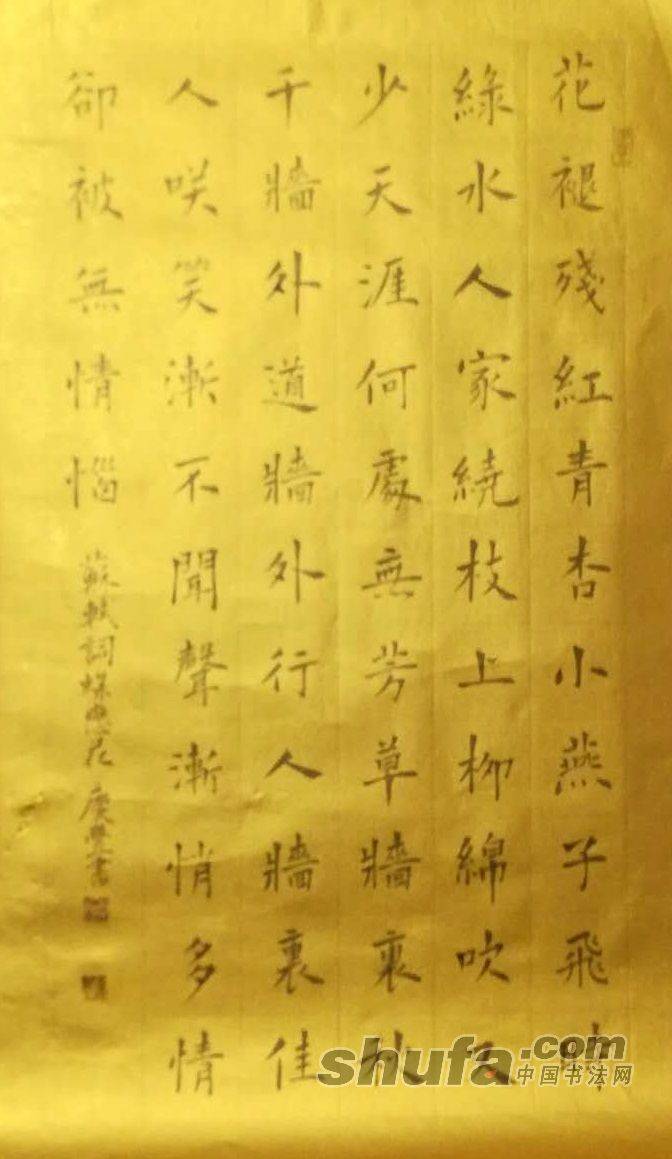 花褪殘紅青杏小燕子飛時
綠水人家繞枝上柳綿吹又
少天涯何處無芳草牆裏秋
千牆外道牆外行人牆裏佳
人咲笑漸不聞聲漸悄多情
卻被無情惱
蘇軾詞蝶戀花 書
shufa.com
中国书法网